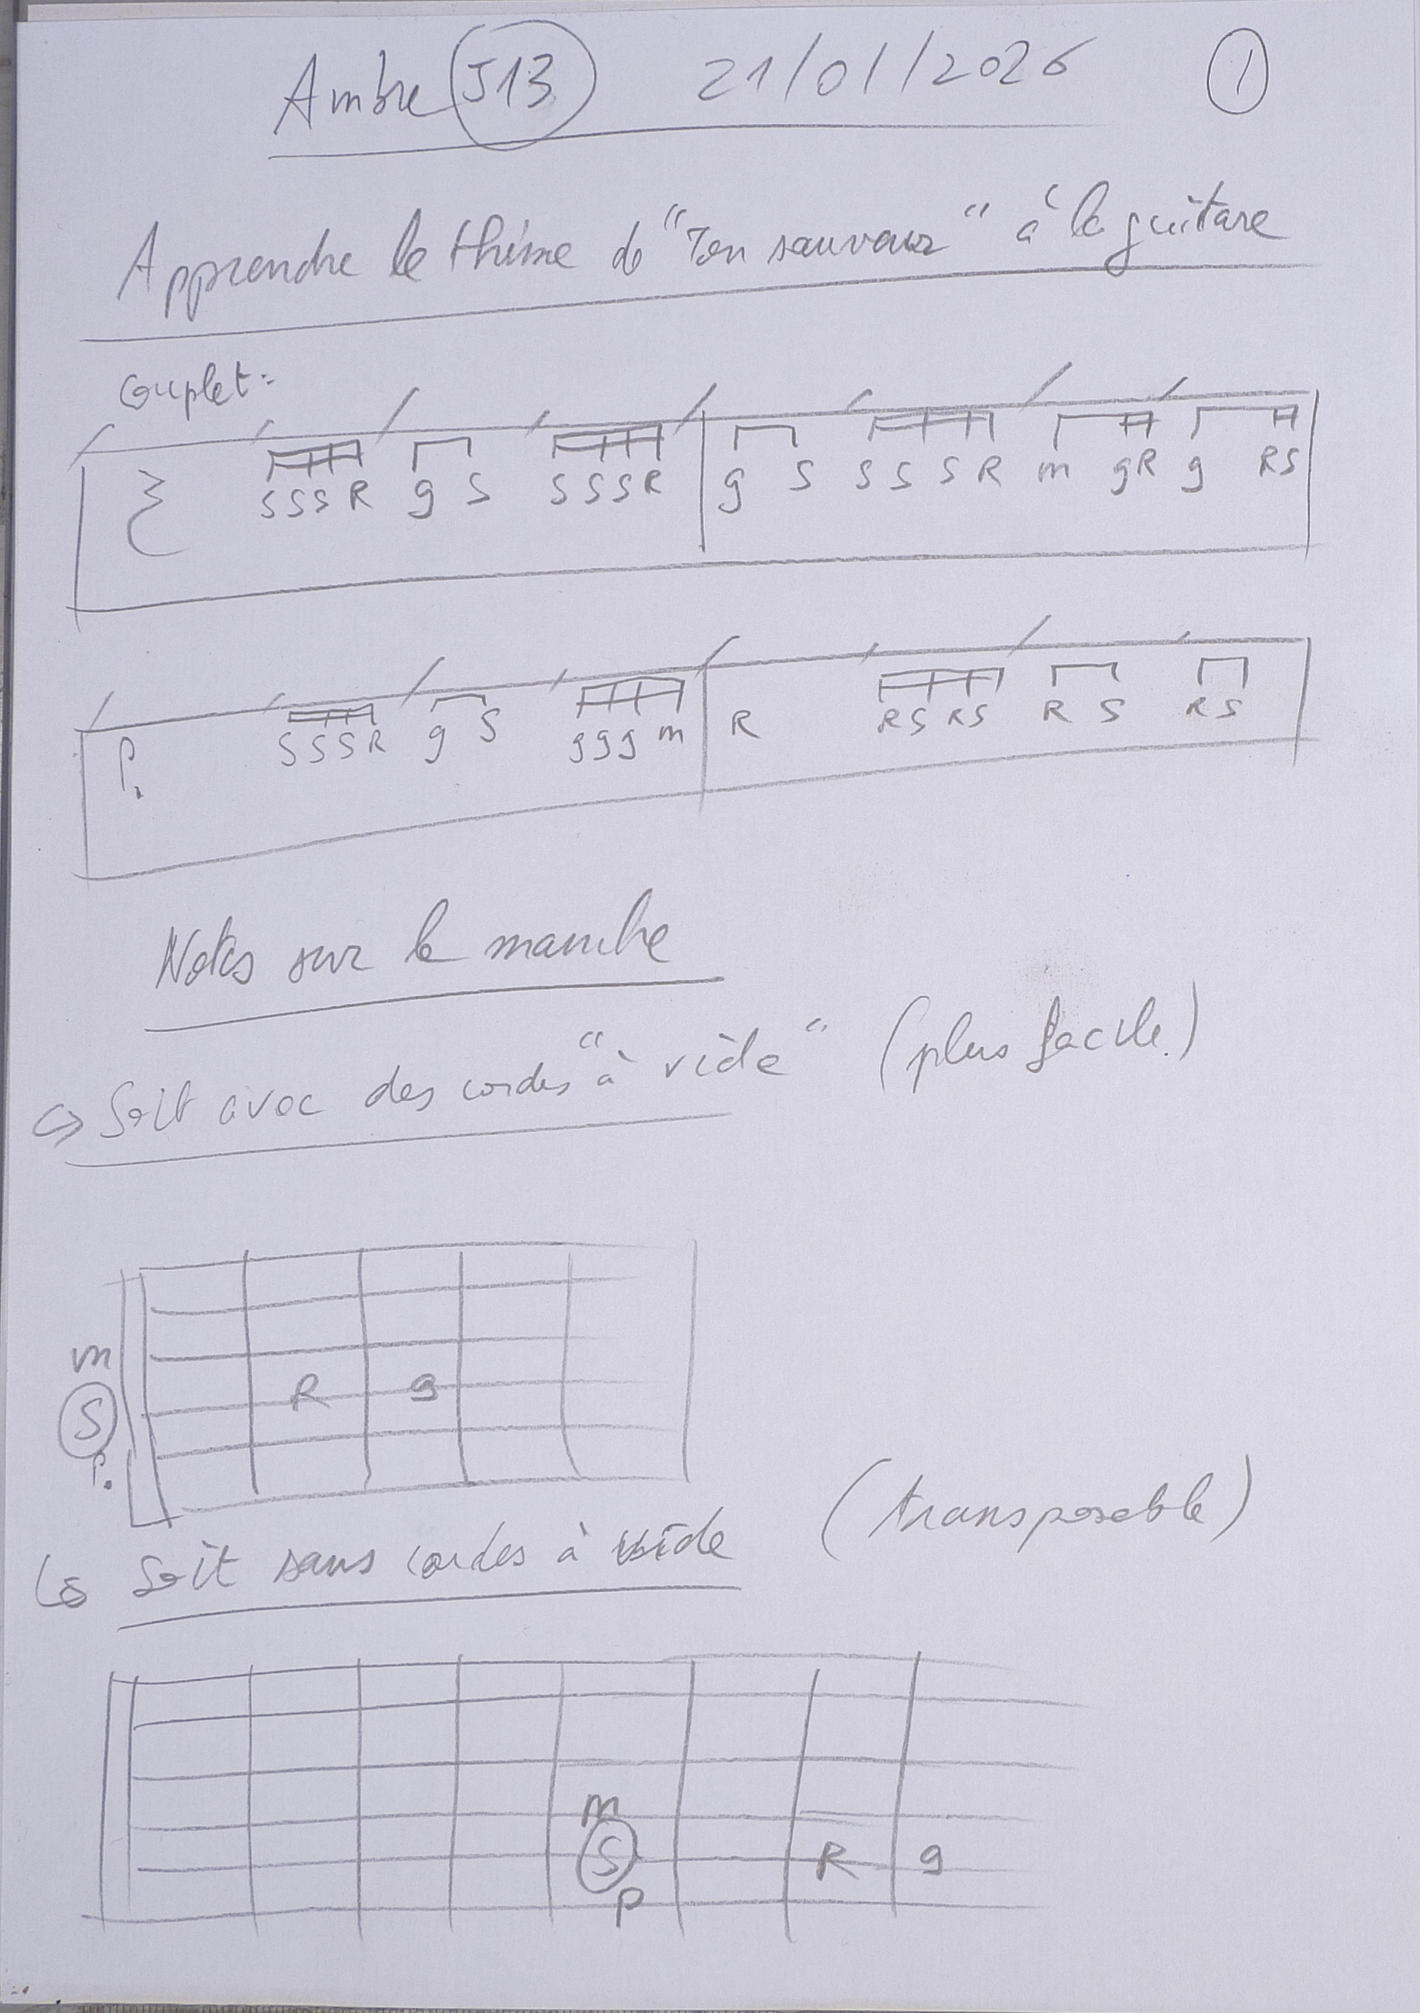 Ambre J13 21/01/2026 1
Apprendre le thème de "Ton sauveur" à la guitare
Couplet:
SSSR g S SSSR g S S S S R m gR g RS
P. SSSR g S gggm R RS RS R S RS
Notes sur le manche
Soit avec des cordes "à vide" (plus facile)
m
S R g
P.
Soit sans cordes à vide (transposable)
m
S R g
P